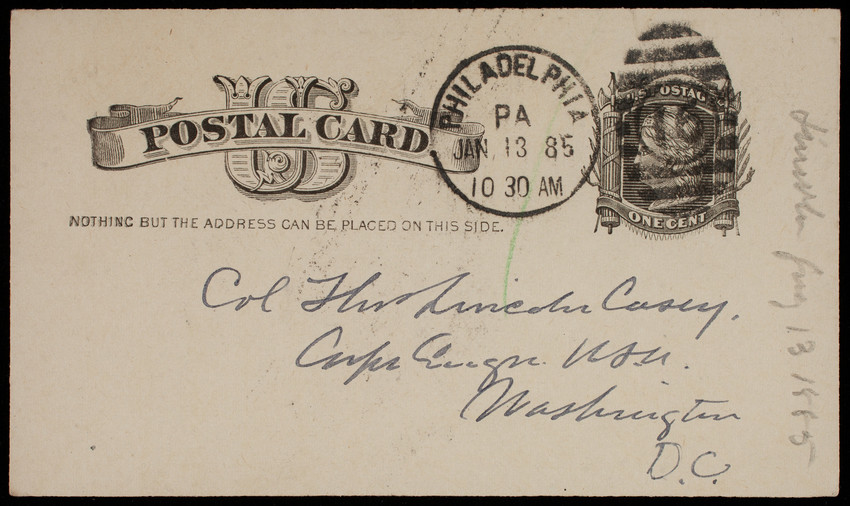 US
POSTAL CARD
NOTHING BUT THE ADDRESS CAN BE PLACED ON THIS SIDE.
PHILADELPHIA
PA
JAN 13 85
10 30 AM
U.S. POSTAGE
ONE CENT
Col Thos Lincoln Casey,
Corps Engrs. U.S.A.
Washington
D.C.
Jany 13 1885